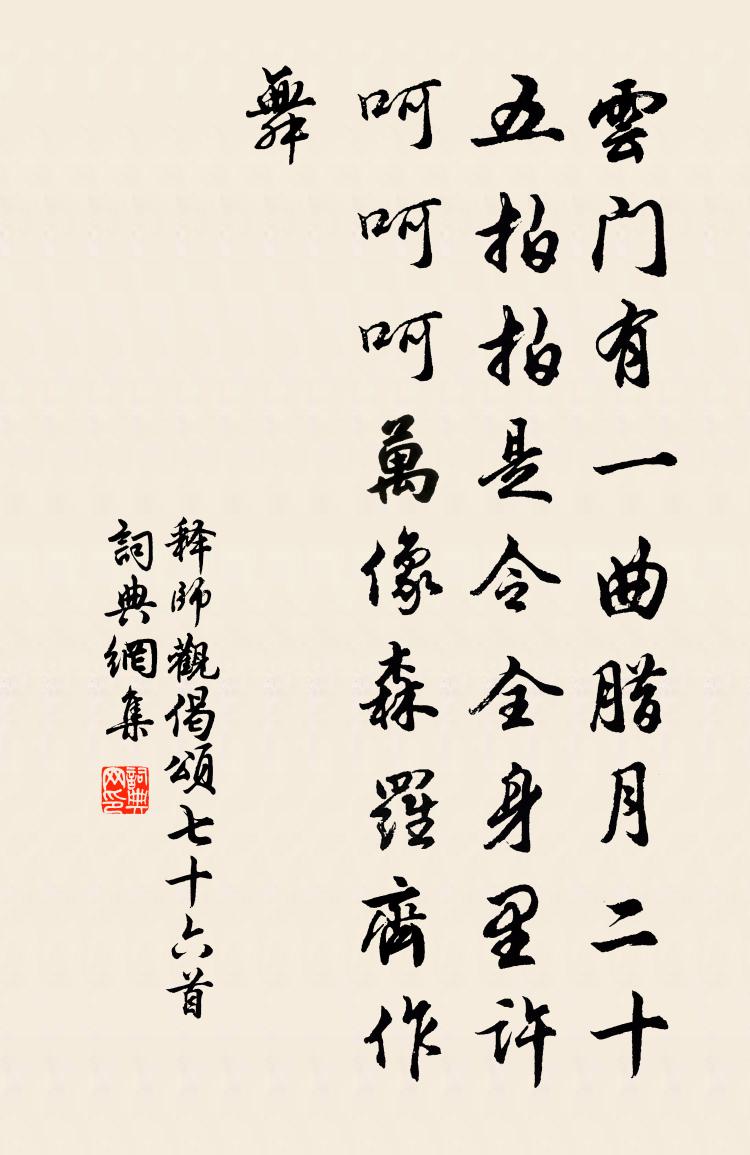 雲门有一曲腊月二十
五拍拍是令全身里許
呵呵呵萬像森羅齊作
舞
释师觀偈頌七十六首
詞典網集
詞典网印